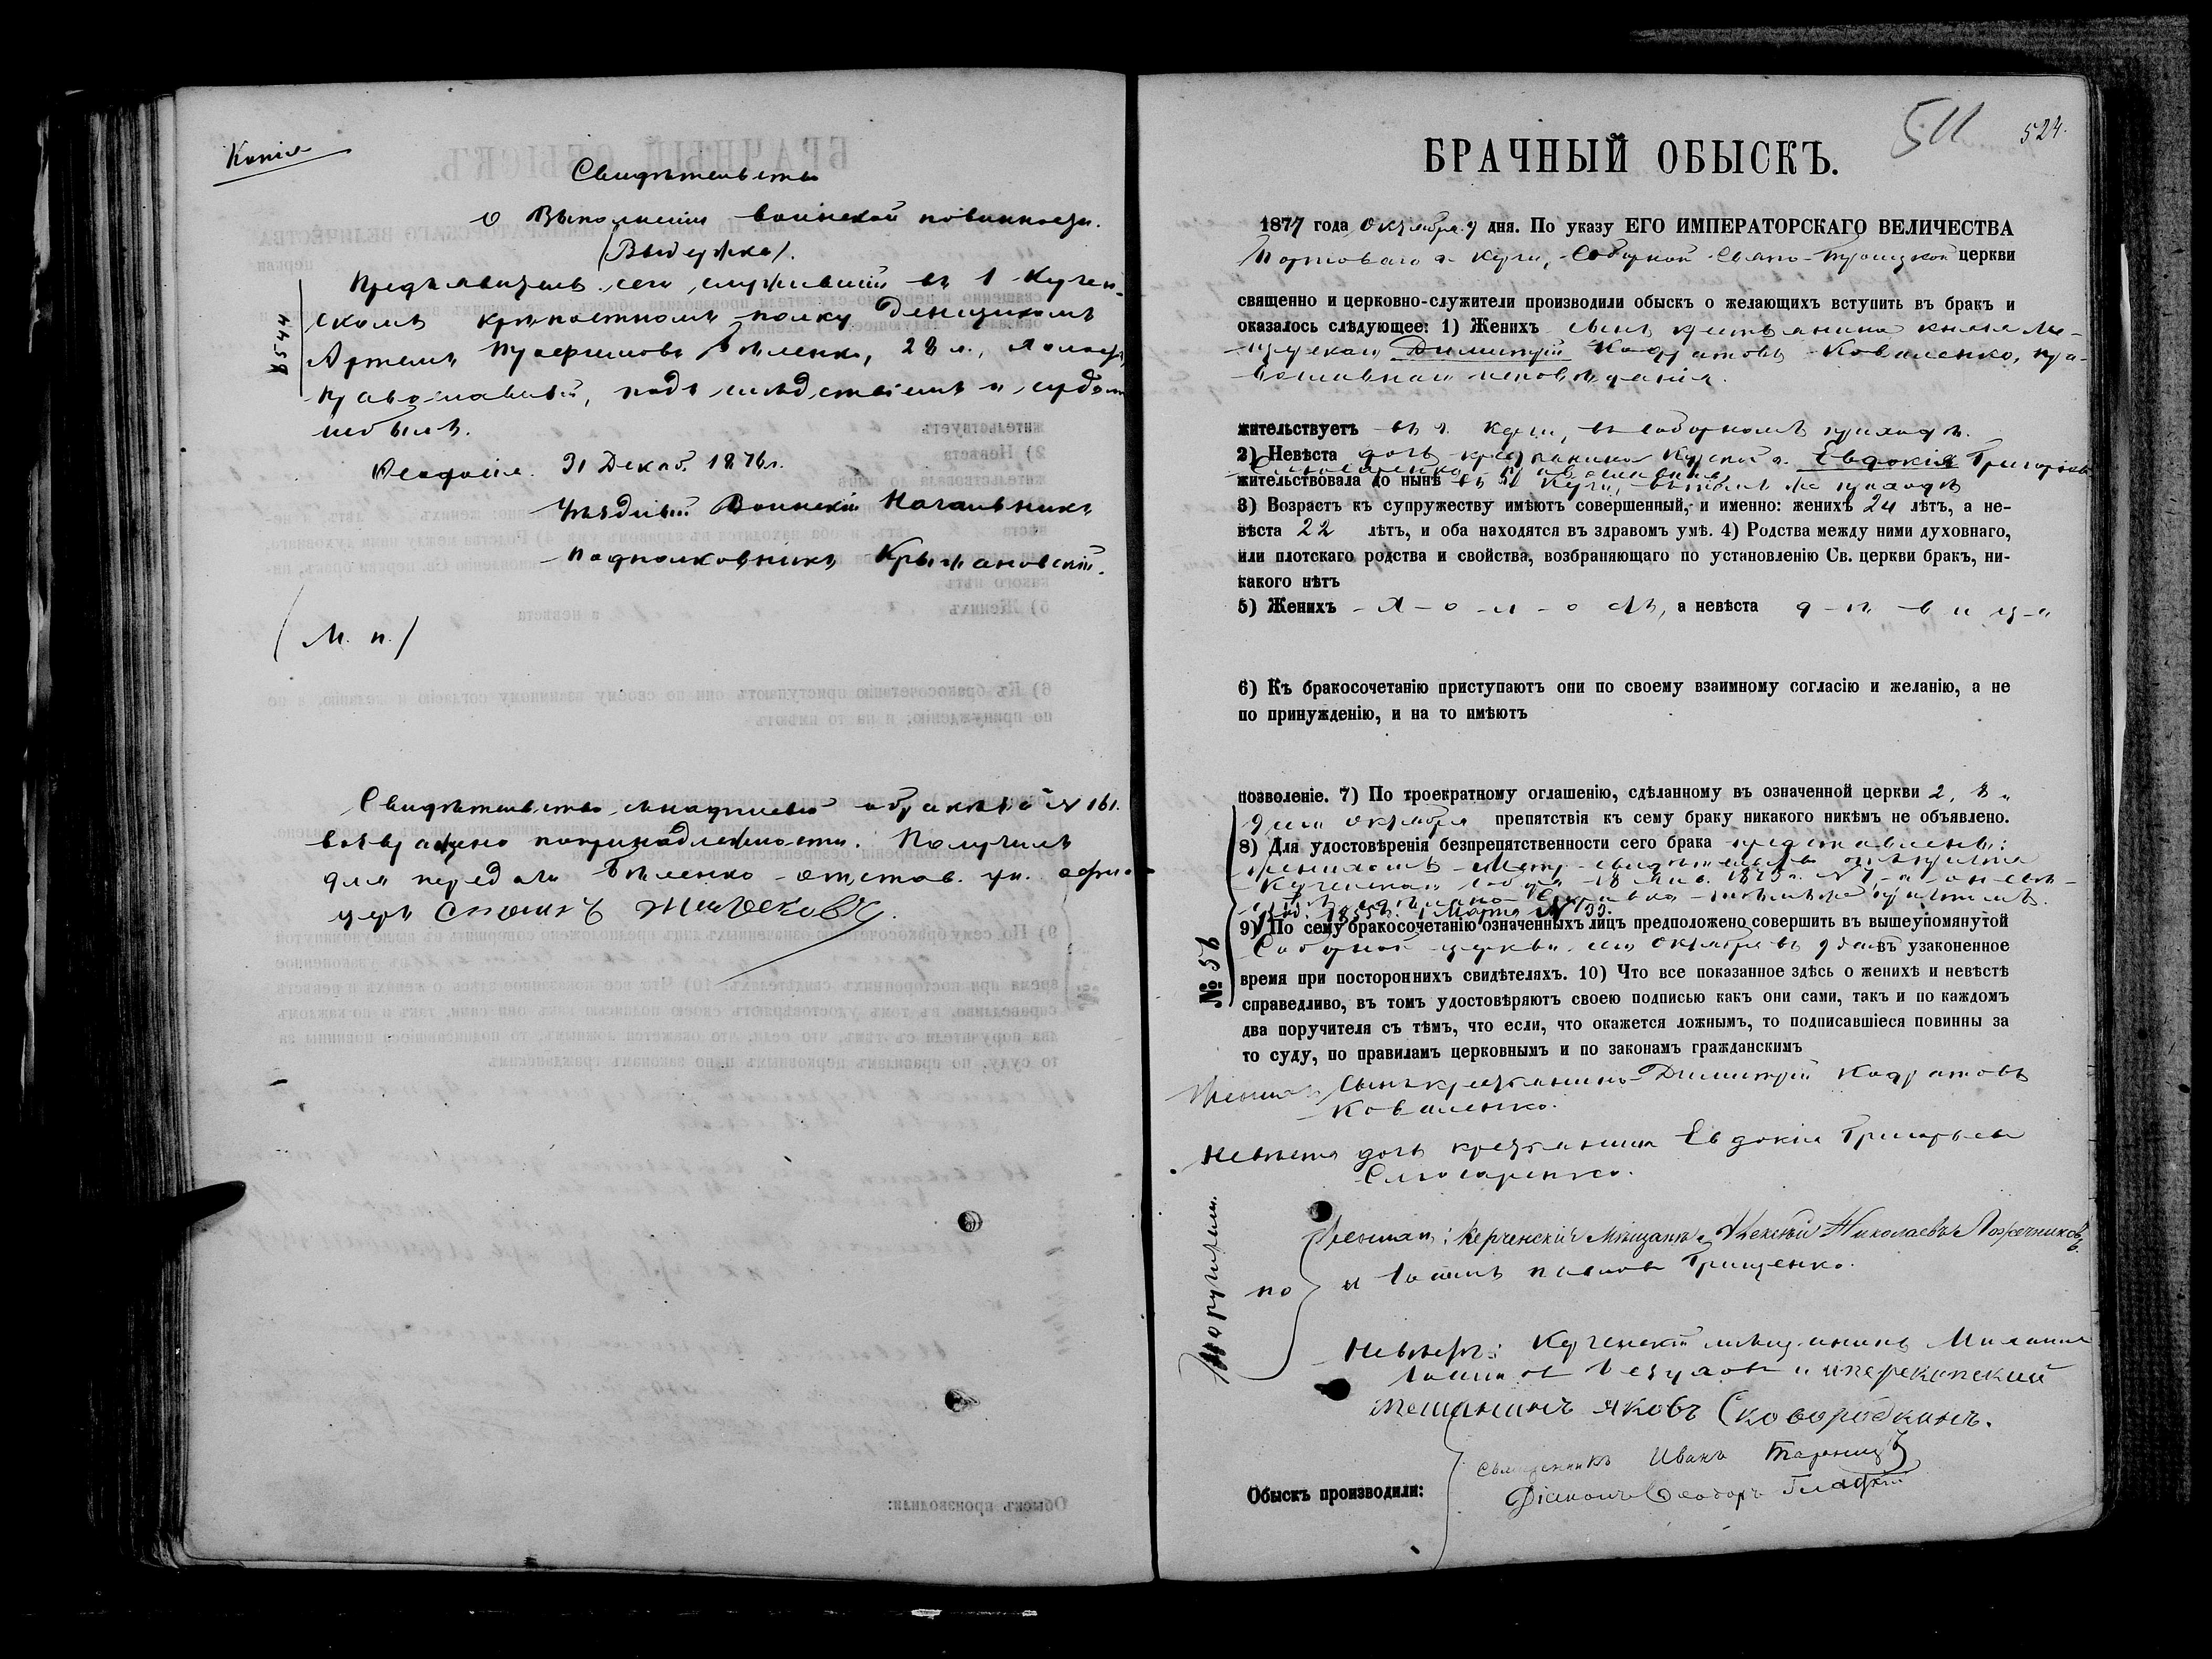 Копія
Свидѣтельство
о Выполненіи воинской повинности.
(Выдержка).
№ 544
Предъявитель сего, служившій въ 1 Керчен-
скомъ крѣпостномъ полку денщикомъ
Артемъ Бѣленко, 28 л., холостъ,
православный, подъ слѣдствіемъ и судомъ
небылъ.
Ѳеодосія. 31 Декаб. 1876 г.
Уѣздный Воинскій Начальникъ
Подполковникъ Крыжановскій.
(М. п.)
Свидѣтельство съ надписью о бракѣ за № 161.
возвращено по принадлежности. Получилъ
для передачи Бѣленко отстав. ун. офи
церъ
511
524.
БРАЧНЫЙ ОБЫСКЪ.
1877 года Октября 9 дня. По указу ЕГО ИМПЕРАТОРСКАГО ВЕЛИЧЕСТВА
Портоваго г. Керчи, Соборной Свято-Троицкой церкви
священно и церковно-служители производили обыскъ о желающихъ вступить въ бракъ и
оказалось слѣдующее: 1) Женихъ сынъ крестьянина
Димитрій Кодратовъ Коваленко, пра-
вославнаго исповѣданія.
жительствуетъ въ г. Керчи, въ соборномъ приходѣ.
2) Невѣста дочь крестьянина Евдокія Григорьева
Слюсаренко, православная
жительствовала до нынѣ въ г. Керчи, въ томъ же приходѣ
3) Возрастъ къ супружеству имѣютъ совершенный, и именно: женихъ 24 лѣтъ, а не-
вѣста 22 лѣтъ, и оба находятся въ здравомъ умѣ. 4) Родства между ними духовнаго,
или плотскаго родства и свойства, возбраняющаго по установленію Св. церкви бракъ, ни-
какого нѣтъ
5) Женихъ - х - о - л - о стъ, а невѣста д - ѣ - в и ц - а
6) Къ бракосочетанію приступаютъ они по своему взаимному согласію и желанію, а не
по принужденію, и на то имѣютъ
позволеніе. 7) По троекратному оглашенію, сдѣланному въ означенной церкви 2, 8 и
9 сего Октября препятствія къ сему браку никакого никѣмъ не объявлено.
8) Для удостовѣренія безпрепятственности сего брака представлены:
женихомъ Метр. свидѣтельство
Керченскаго собора 18 Янв. 1875 г. № 7,
1855 г. 1 Марта № 193.
9) По сему бракосочетанію означенныхъ лицъ предположено совершить въ вышеупомянутой
Соборной церкви сего Октября въ 9 день въ узаконенное
время при постороннихъ свидѣтеляхъ. 10) Что все показанное здѣсь о женихѣ и невѣстѣ
справедливо, въ томъ удостовѣряютъ своею подписью какъ они сами, такъ и по каждомъ
два поручителя съ тѣмъ, что если, что окажется ложнымъ, то подписавшіеся повинны за
то суду, по правиламъ церковнымъ и по законамъ гражданскимъ
№ 56
Женихъ Сынъ крестьянина Димитрій Кодратовъ
Коваленко.
Невѣста дочь крестьянина Евдокія Григорьева
Слюсаренко.
Поручители.
по
Женихѣ: Керченскій Мѣщанинъ Алексѣй Николаевъ
и Іоаннъ Павловъ Грищенко.
Невѣстѣ: Керченскій мѣщанинъ
и перекопский
мещанинъ Яковъ Сковородкинъ.
Обыскъ производили:
Священникъ Иванъ
Діаконъ Ѳеодоръ Гладкій